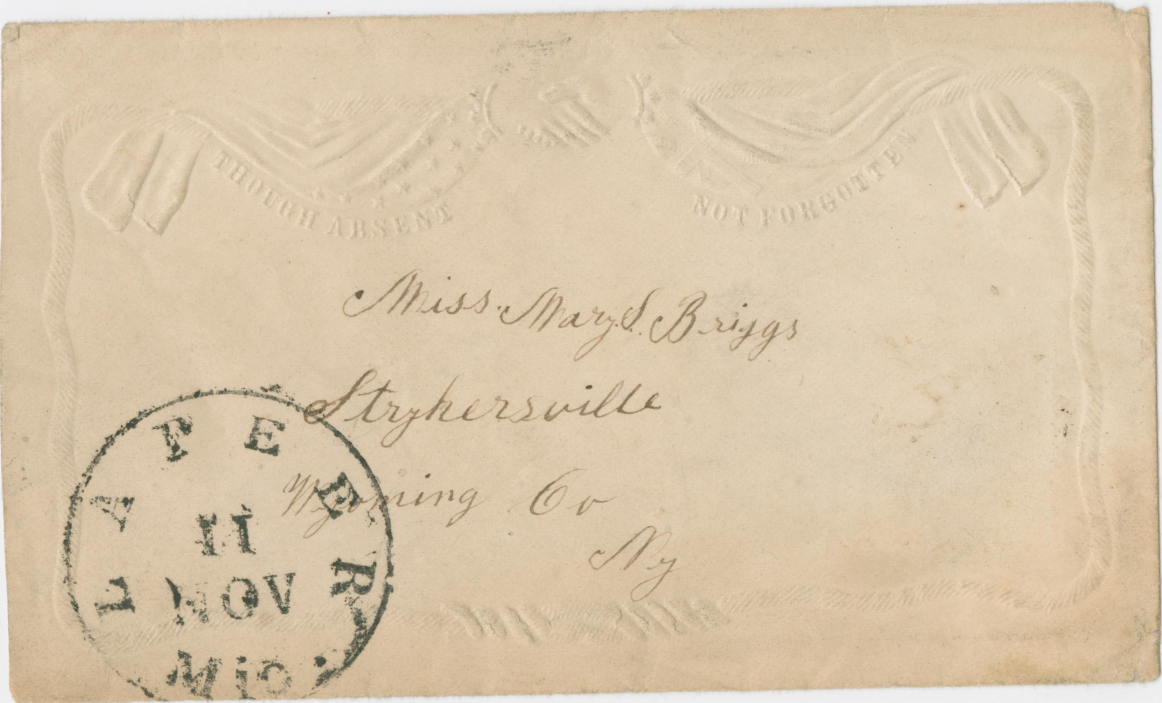 THOUGH ABSENT
NOT FORGOTTEN
Miss. Mary S. Briggs
Strykersville
Wyoming Co
Ny
LAPEER
11
NOV
Mic.